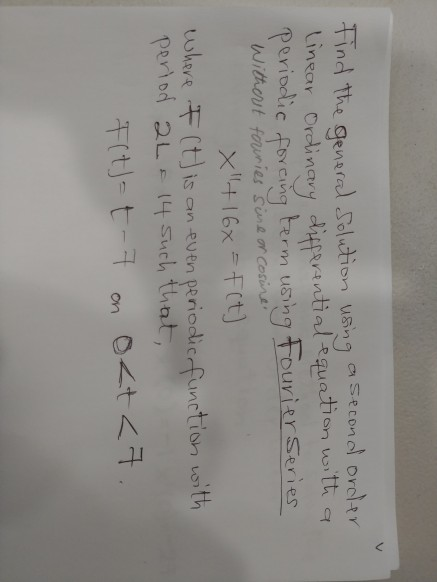 Find the general solution using a second order
linear ordinary differential equation with a
periodic forcing term using Fourier series
without fouries sine or cosine.
x"+16x = F(t)
where F(t) is an even periodic function with
period 2L = 14 such that,
F(t) = t-7 on 0<t<7.